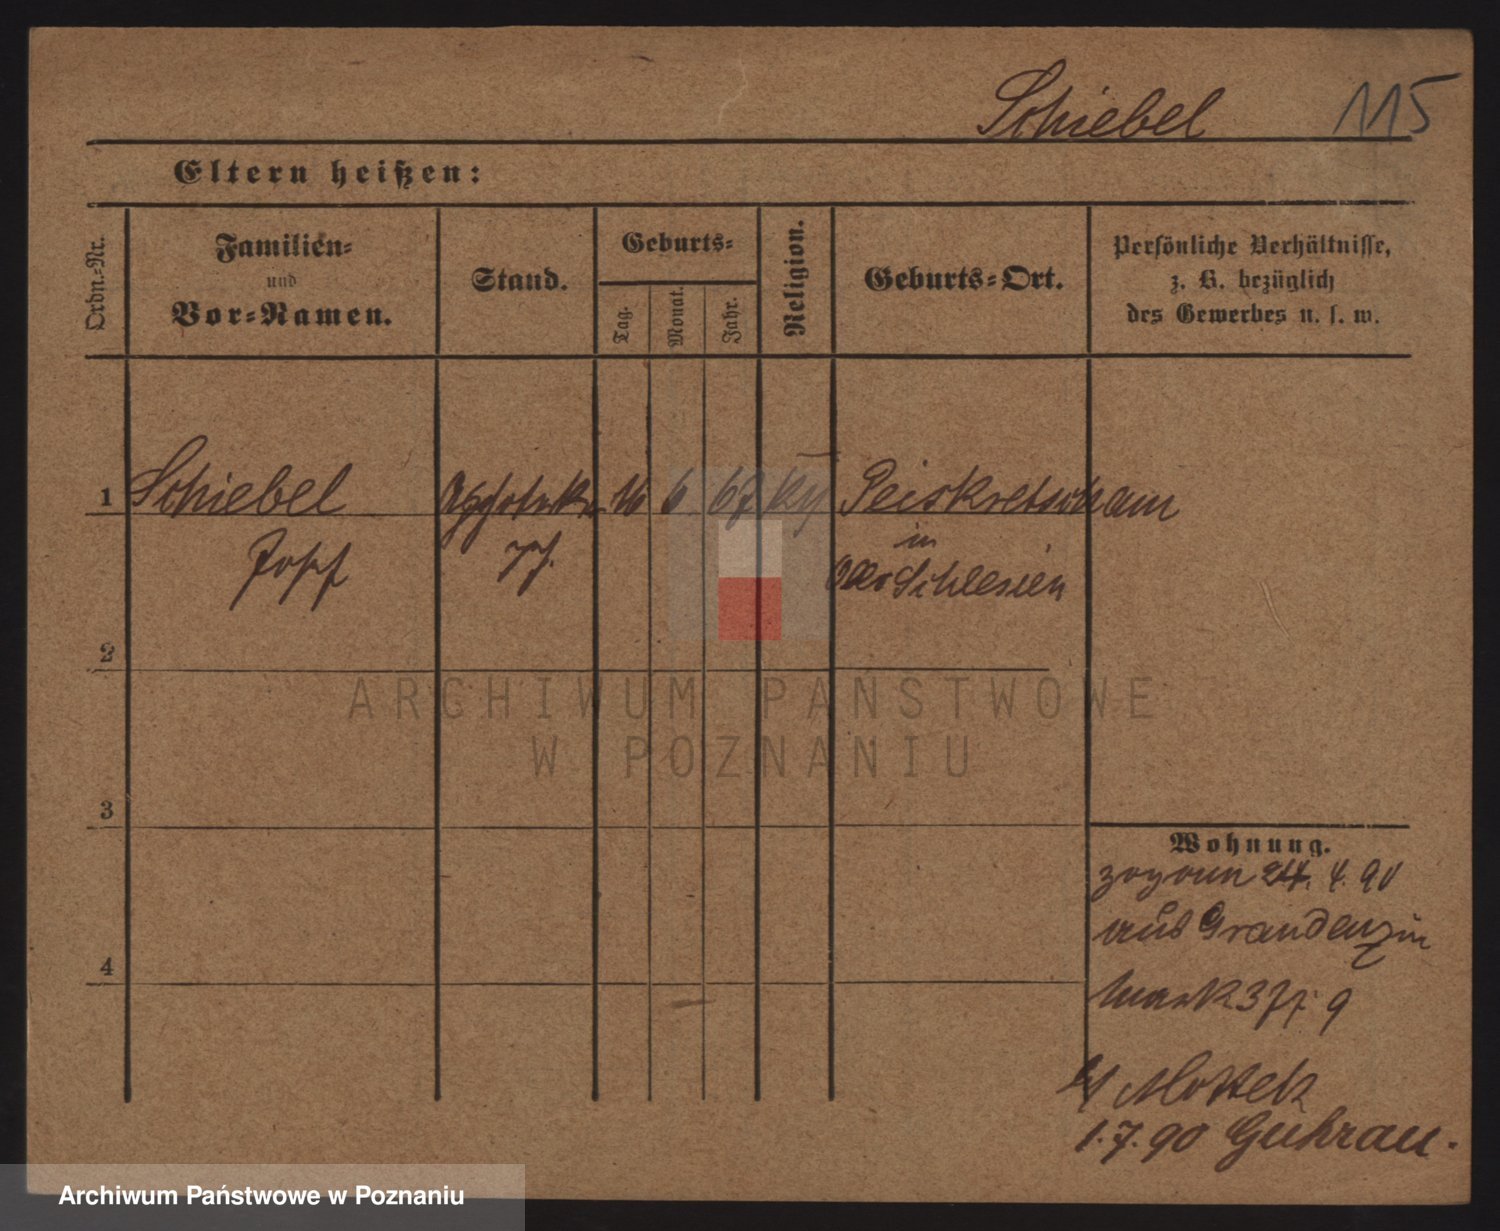 Schiebel 115
Eltern heißen:
Ordn.-Nr.
Familien-
und
Vor-Namen.
Stand.
Geburts-
Tag.
Monat.
Jahr.
Religion.
Geburts-Ort.
Persönliche Verhältnisse,
z. B. bezüglich
des Gewerbes u. s. w.
1 Schiebel 16 6 67 Peiskretscham
Josef
in
Ober Schlesien
2
3
4
Wohnung.
24. 4. 90
aus Graudenz in
Markt 37
b/ Mottek
1.7.90 Guhrau.
ARCHIWUM PAŃSTWOWE
W POZNANIU
Archiwum Państwowe w Poznaniu